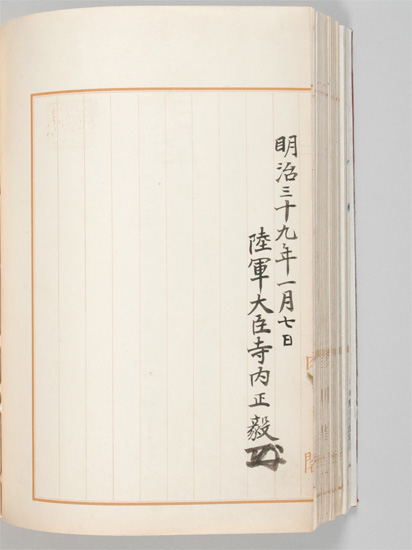 明治三十九年一月七日
陸軍大臣寺内正毅
内
閣